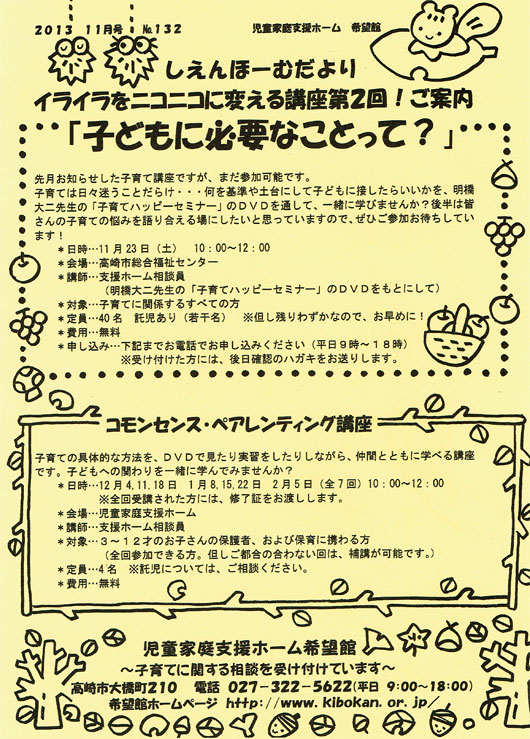 2013 11月号 No.132 児童家庭支援ホーム 希望館
しえんほーむだより
イライラをニコニコに変える講座第2回！ご案内
「子どもに必要なことって？」
先月お知らせした子育て講座ですが、まだ参加可能です。
子育ては日々迷うことだらけ・・・何を基準や土台にして子どもに接したらいいかを、明橋
大二先生の「子育てハッピーセミナー」のDVDを通して、一緒に学びませんか？後半は皆
さんの子育ての悩みを語り合える場にしたいと思っていますので、ぜひご参加お待ちしてい
ます！
＊日時…11月23日（土） 10：00～12：00
＊会場…高崎市総合福祉センター
＊講師…支援ホーム相談員
（明橋大二先生の「子育てハッピーセミナー」のDVDをもとにして）
＊対象…子育てに関係するすべての方
＊定員…40名 託児あり（若干名） ※但し残りわずかなので、お早めに！
＊費用…無料
＊申し込み…下記までお電話でお申し込みください（平日9時～18時）
※受け付けた方には、後日確認のハガキをお送りします。
コモンセンス・ペアレンティング講座
子育ての具体的な方法を、DVDで見たり実習をしたりしながら、仲間とともに学べる講座
です。子どもへの関わりを一緒に学んでみませんか？
＊日時…12月4,11,18日 1月8,15,22日 2月5日（全7回）10：00～12：00
※全回受講された方には、修了証をお渡しします。
＊会場…児童家庭支援ホーム
＊講師…支援ホーム相談員
＊対象…3～12才のお子さんの保護者、および保育に携わる方
（全回参加できる方。但しご都合の合わない回は、補講が可能です。）
＊定員…4名 ※託児については、ご相談ください。
＊費用…無料
児童家庭支援ホーム希望館
～子育てに関する相談を受け付けています～
高崎市大橋町210 電話 027-322-5622(平日 9:00～18:00)
希望館ホームページ http://www.kibokan.or.jp/